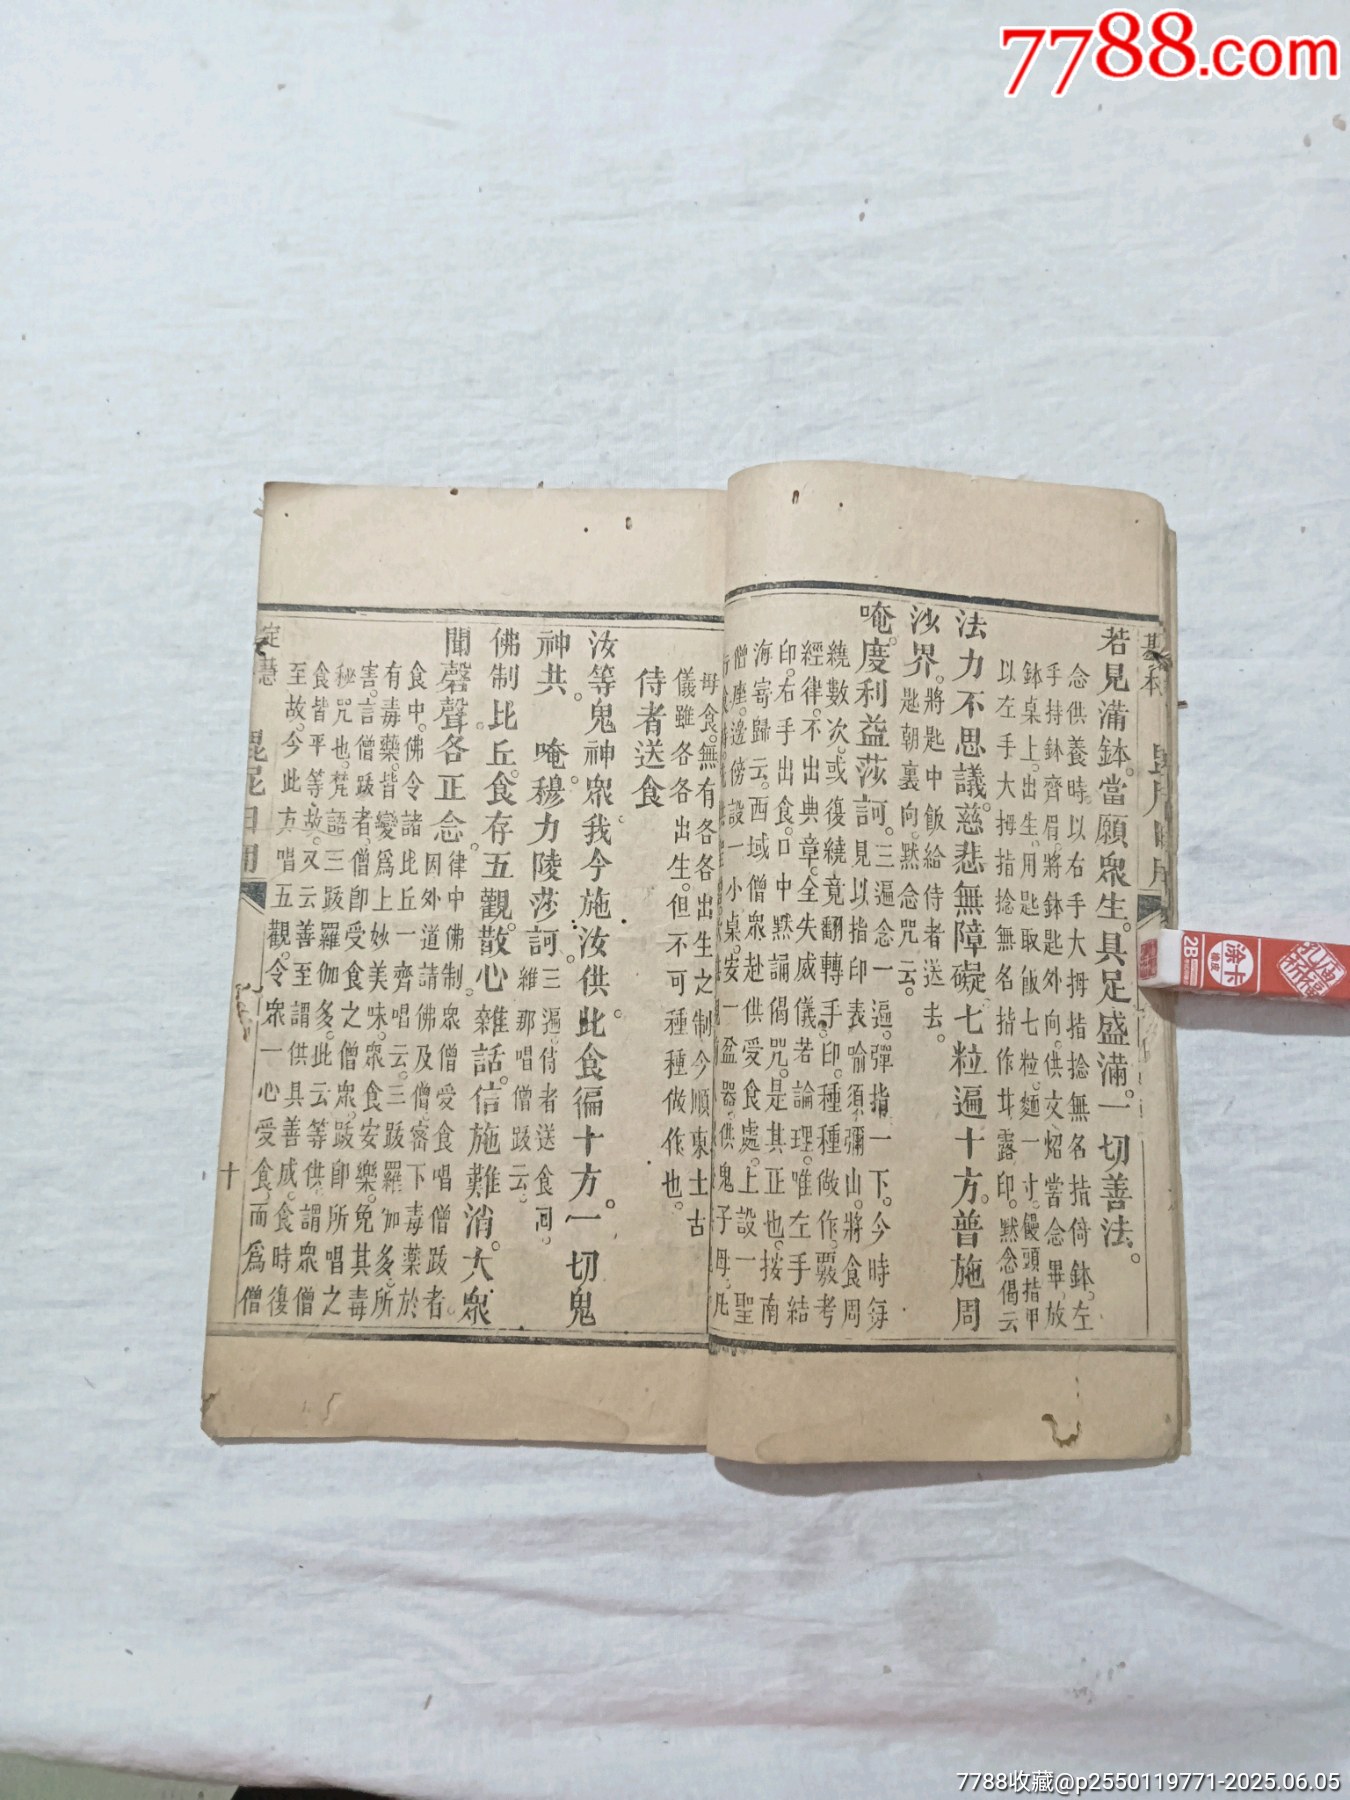 7788.com
若見滿鉢。當願衆生。具足盛滿。一切善法。
念供養時。以右手大拇指捻無名指倚鉢。左
手持鉢齊眉。將鉢匙外向。供文焰當念畢。放
鉢桌上。出生。用匙取飯七粒。麵一寸。饅頭指甲
以左手大拇指捻無名指作甘露印。默念偈云
法力不思議。慈悲無障礙。七粒遍十方。普施周
沙界。將匙中飯給侍者送去。
匙朝裏向。默念咒云。
唵。度利益莎訶。三遍念一遍。彈指一下。今時每
見以指印表喻須彌山。將食周
繞數次。或復繞竟翻轉手印。種種做作。覈考
經律。不出典章。全失威儀。若論理。唯左手結
印。右手出食。口中默誦偈咒。是其正也。按南
海寄歸云。西域僧衆赴供受食處。上設一聖
僧座。邊傍設一小桌。安一盆器。供鬼子母。凡
毋食。無有各各出生之制。今順東土古
儀。雖各各出生。但不可種種做作也。
侍者送食
汝等鬼神衆。我今施汝供。此食徧十方。一切鬼
神共。 唵。穆力陵莎訶。三遍。侍者送食回。
維那唱僧跋云。
佛制比丘。食存五觀。散心雜話。信施難消。大衆
聞磬聲。各正念。律中佛制。衆僧愛食唱僧跋者
因外道請佛及僧。密下毒藥於
食中。佛令諸比丘一齊唱云。三跋羅伽多。所
有毒藥。皆變爲上妙美味。衆食安樂。免其毒
害。言僧跋者。僧卽受食之僧衆。跋卽所唱之
秘咒也。梵語三跋羅伽多。此云等供。謂衆僧
食皆平等故。又云善至。謂供具善成。食時復
至故。今此方唱五觀。令衆一心受食。而爲僧
定慧
毘尼日用
十
2B
涂卡
橡皮
7788收藏@p2550119771-2025.06.05